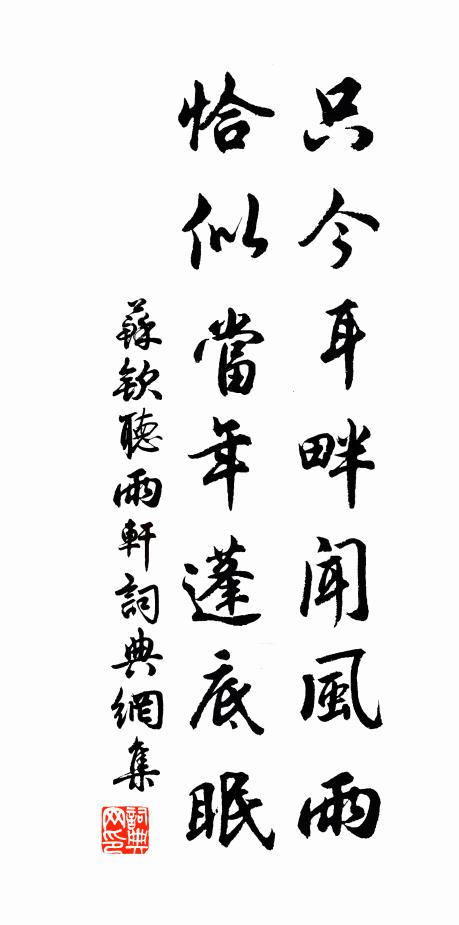 只今耳畔聞風雨
恰似當年蓬底眠
蘇欽聽雨軒詞典網集
詞典网印